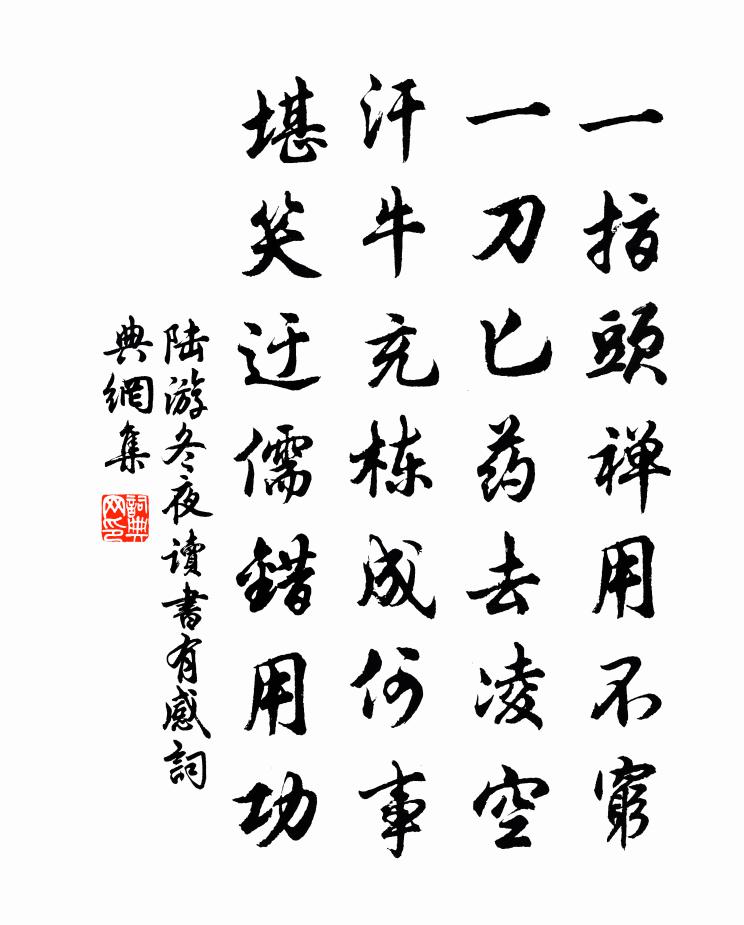 一指頭禅用不窮
一刀匕药去凌空
汗牛充栋成何事
堪笑迂儒錯用功
陆游冬夜讀書有感詞
典網集
詞典网印